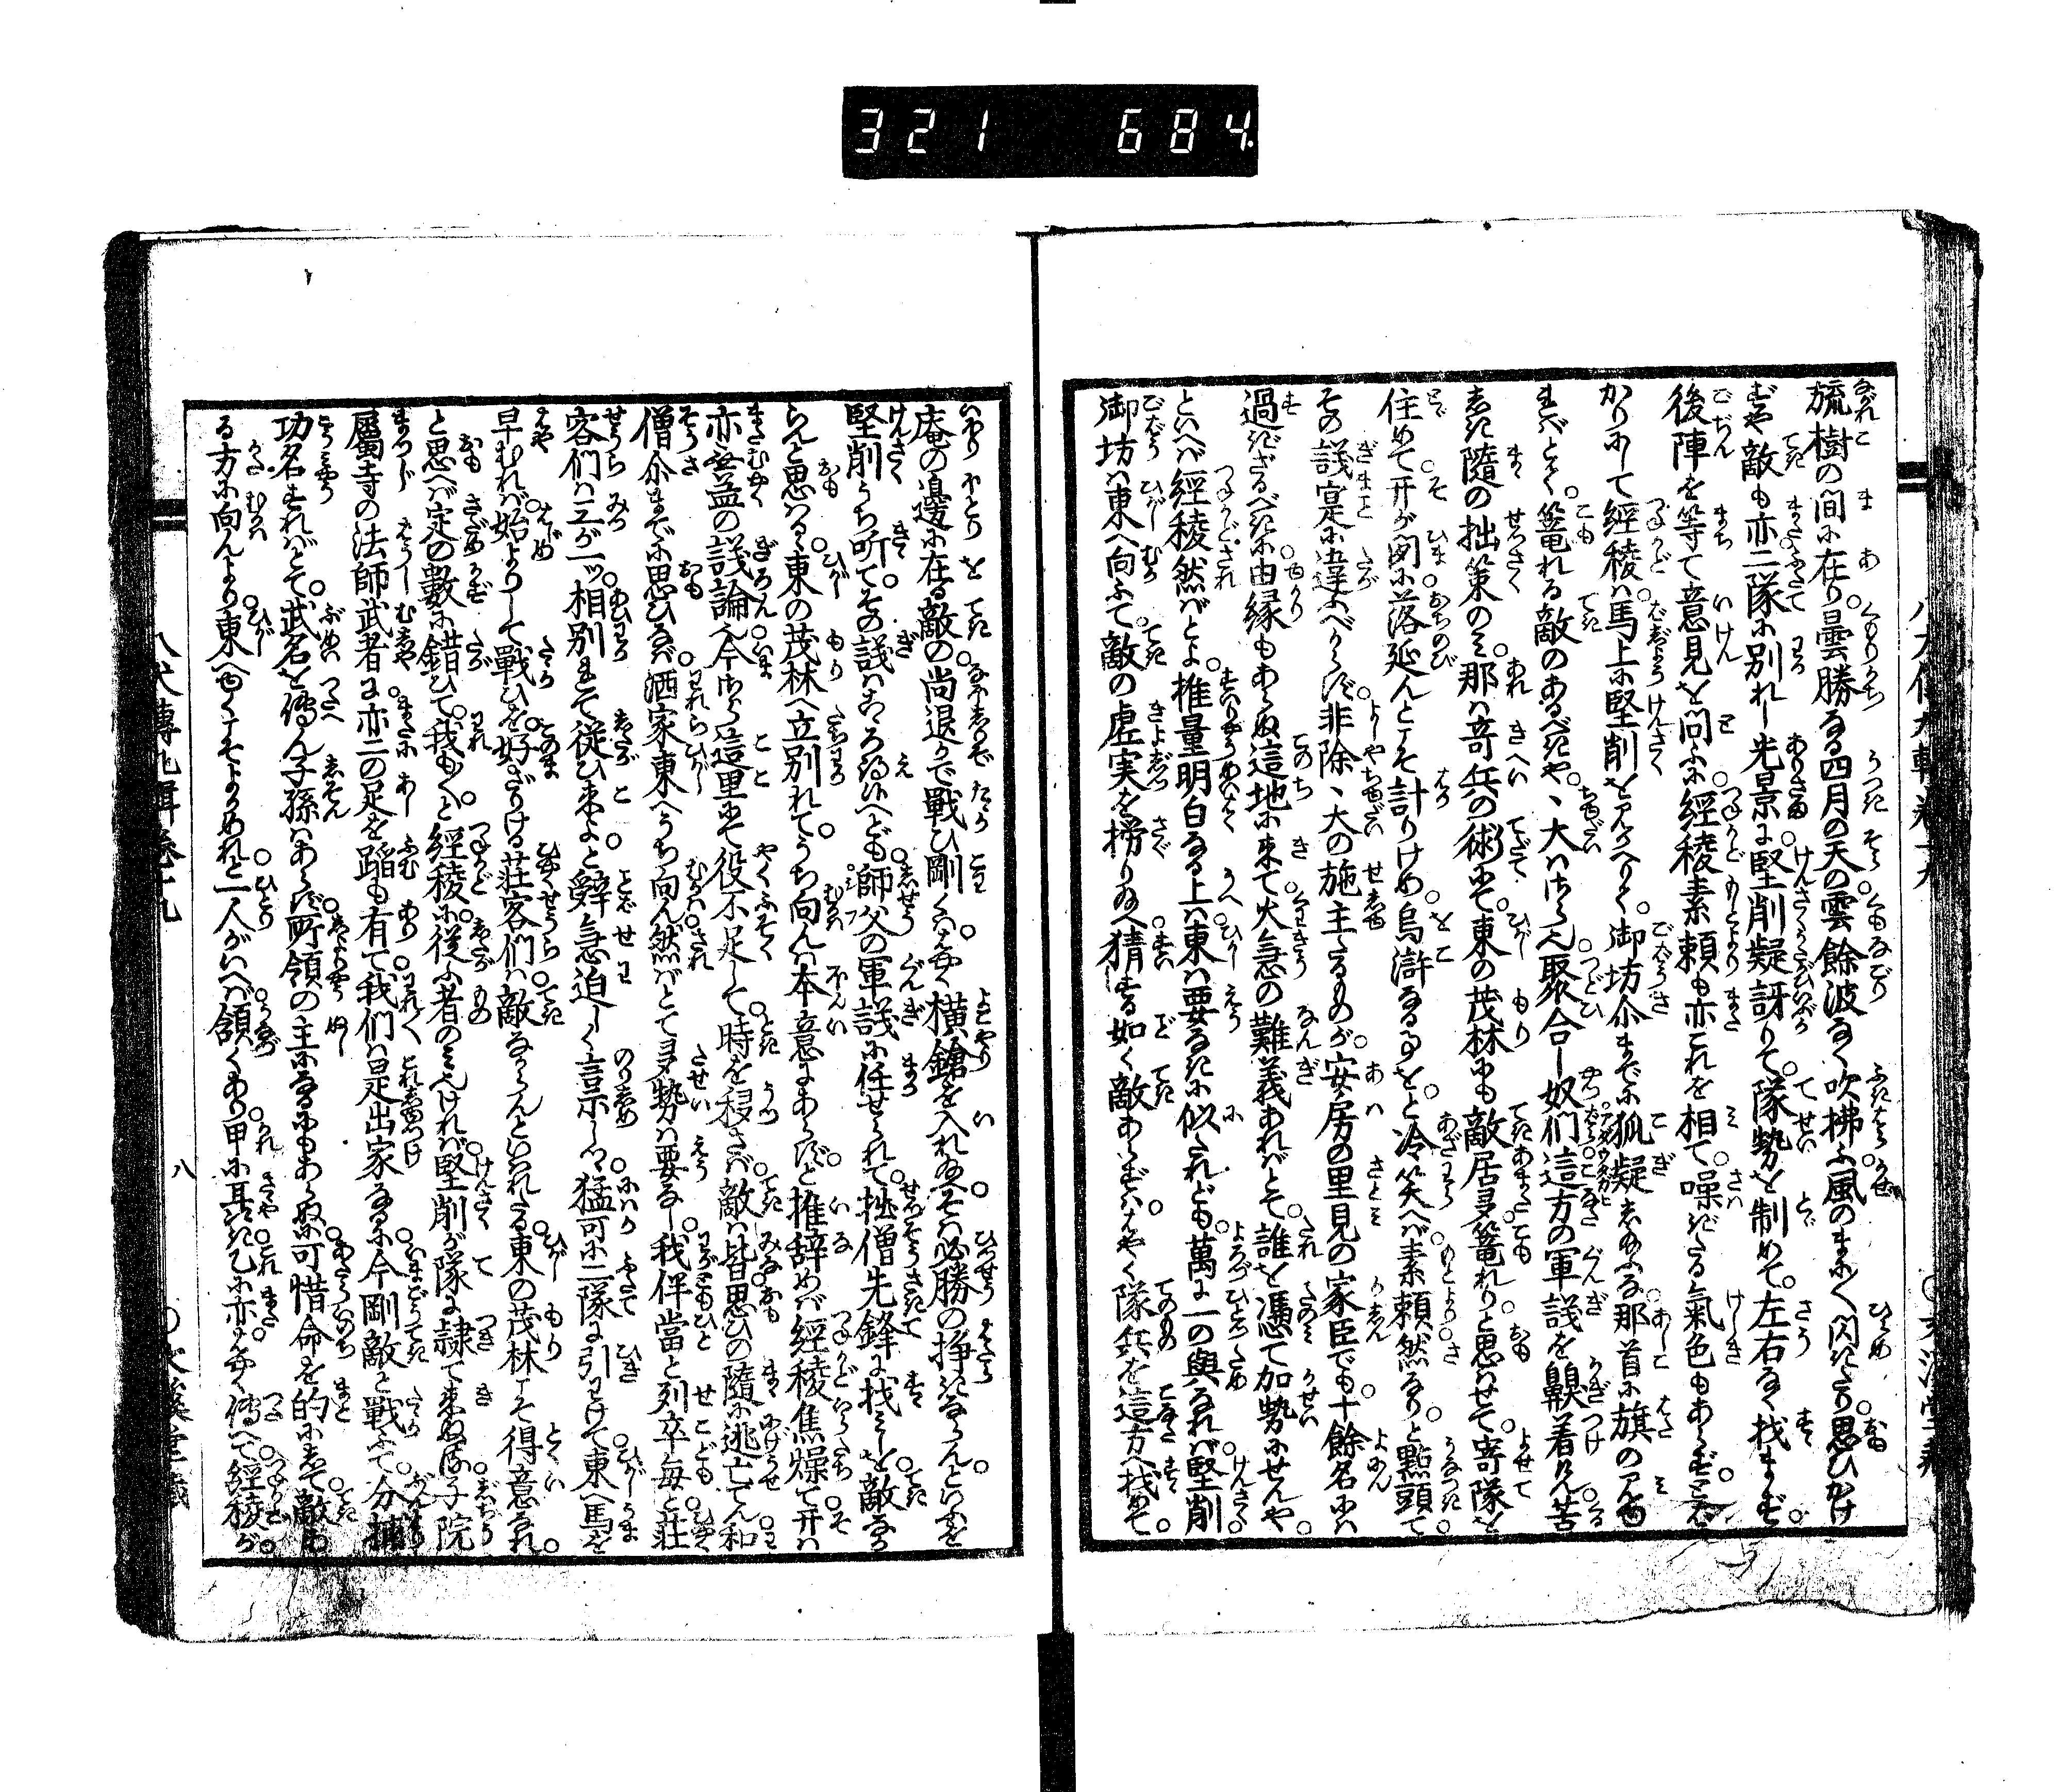 321 684
旒樹の間に在り。曇勝なる四月の天の雲。餘波なく吹拂ふ。風のまに〳〵閃きたり。思ひかけ
ずや敵も亦二隊に別れし光景に。堅削疑訝りて。隊勢を制めて。左右なく找まず。
後陣を等て意見を問ふに。經稜素頼も亦これを相て。噪ぎたる氣色もあらず。
かりにして經稜は馬上に堅削を見かへりて。御坊介までに狐疑したまふな。那首に旗の見ゆ
ればとて。篭れる敵のあるべきや。、大はさらん。聚合し奴們這方の軍議を䑕着けん。苦
しき隨の拙策のみ。那は竒兵の術にて。東の茂林にも敵居多篭れりと思はせて。寄隊を
住めて。开が閧に落延んとこそ計りけめ。烏滸なることを。と冷笑へば素頼然なり。と點頭て。
その議寔に違ふべからず。非除、大の施主たるものが。安房の里見の家臣でも。十餘名には
過ぎざるべきに。由縁もあらぬ這地に来て。火急の難義あればとて。誰を憑て加勢にせんや。
といへば經稜然ばとよ。推量明白なる上は。東は要なきに似たれども。萬に一の與なれば。堅削
御坊は東へ向ふて。敵の虚実を撈りね。猜する如く敵あらずは。はやく隊兵を這方へ找めて。
庵の邊に在る敵の。尚退かで戰ひ剛くは。横鎗を入れね。そは必勝の挣きならん。といふを
堅削うち听て。その議はこゝろ得候へども。師父の軍議に任せられて。拙僧先鋒に找みしを。敵な
らんと思はるゝ。東の茂林へ立別れて。うち向んは本意にあらず。と推辞めば經稜焦燥て开は
亦無益の議論。今さら這里にて役不足して。時を移さば敵は皆。思ひの隨に逃亡てん。和
僧介までに思ひなば。洒家東へうち向ん。然ばとて多勢は要なし。我伴當と列卒毎と莊
客們は三が一ッ。相別れて從ひ来よ。と辭急迫しく言示しつ。猛可に二隊に引わけて。東へ馬を
早むれば。始よりして戰ひを。好ざりける莊客們は。敵なからんといはれたる。東の茂林こそ得意なれ。
と思へば定の數に錯ひて。我も〳〵と。經稜に從ふ者のみ多ければ。堅削が隊に隷て来ぬ。子院
屬寺の法師武者に。亦二の足を蹈も有て。我們は是出家なるに。今剛敵と戰ふて。分捕
功名すればとて。武名を傳ん子孫はあらず。所領の主になるにもあらぬに。可惜命を的にして。敵ある
る方に向んより。東へゆくこそよかるめれ。と一人がいへば。領くあり。甲に耳語き乙に亦。傳へて。經稜が。
八犬傳九輯卷十九
八